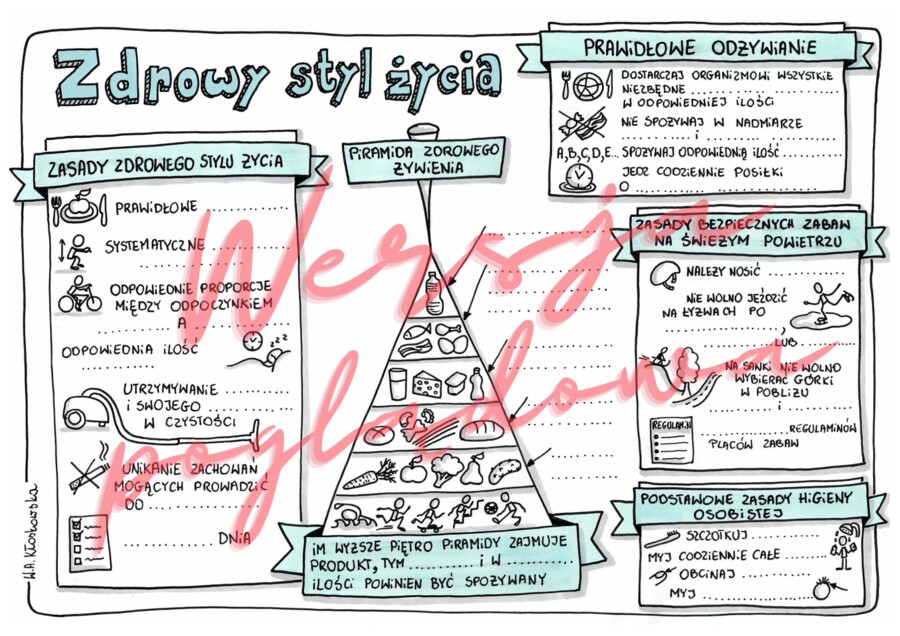 Zdrowy styl życia
ZASADY ZDROWEGO STYLU ŻYCIA
PRAWIDŁOWE ....................
SYSTEMATYCZNE ....................
....................
ODPOWIEDNIE PROPORCJE
MIĘDZY ODPOCZYNKIEM
.................... A ....................
ODPOWIEDNIA ILOŚĆ
....................
zzz
UTRZYMYWANIE ....................
I SWOJEGO ....................
W CZYSTOŚCI
UNIKANIE ZACHOWAŃ
MOGĄCYCH PROWADZIĆ
DO ....................
.................... DNIA
PIRAMIDA ZDROWEGO
ŻYWIENIA
IM WYŻSZE PIĘTRO PIRAMIDY ZAJMUJE
PRODUKT, TYM .................... I W ....................
ILOŚCI POWINIEN BYĆ SPOŻYWANY
PRAWIDŁOWE ODŻYWIANIE
DOSTARCZAJ ORGANIZMOWI WSZYSTKIE
NIEZBĘDNE ....................
W ODPOWIEDNIEJ ILOŚCI
NIE SPOŻYWAJ W NADMIARZE
.................... I ....................
A,B,C,D,E... SPOŻYWAJ ODPOWIEDNIĄ ILOŚĆ ....................
JEDZ CODZIENNIE POSIŁKI
O ....................
ZASADY BEZPIECZNYCH ZABAW
NA ŚWIEŻYM POWIETRZU
NALEŻY NOSIĆ ....................
NIE WOLNO JEŹDZIĆ
NA ŁYŻWACH PO
...................., LUB ....................
NA SANKI NIE WOLNO
WYBIERAĆ GÓRKI
W POBLIŻU
.................... I ....................
REGULAMIN
.................... REGULAMINÓW
PLACÓW ZABAW
PODSTAWOWE ZASADY HIGIENY
OSOBISTEJ
SZCZOTKUJ ....................
MYJ CODZIENNIE CAŁE ....................
OBCINAJ ....................
MYJ ....................
W.A. Kłoskowska
Wersja
poglądowa